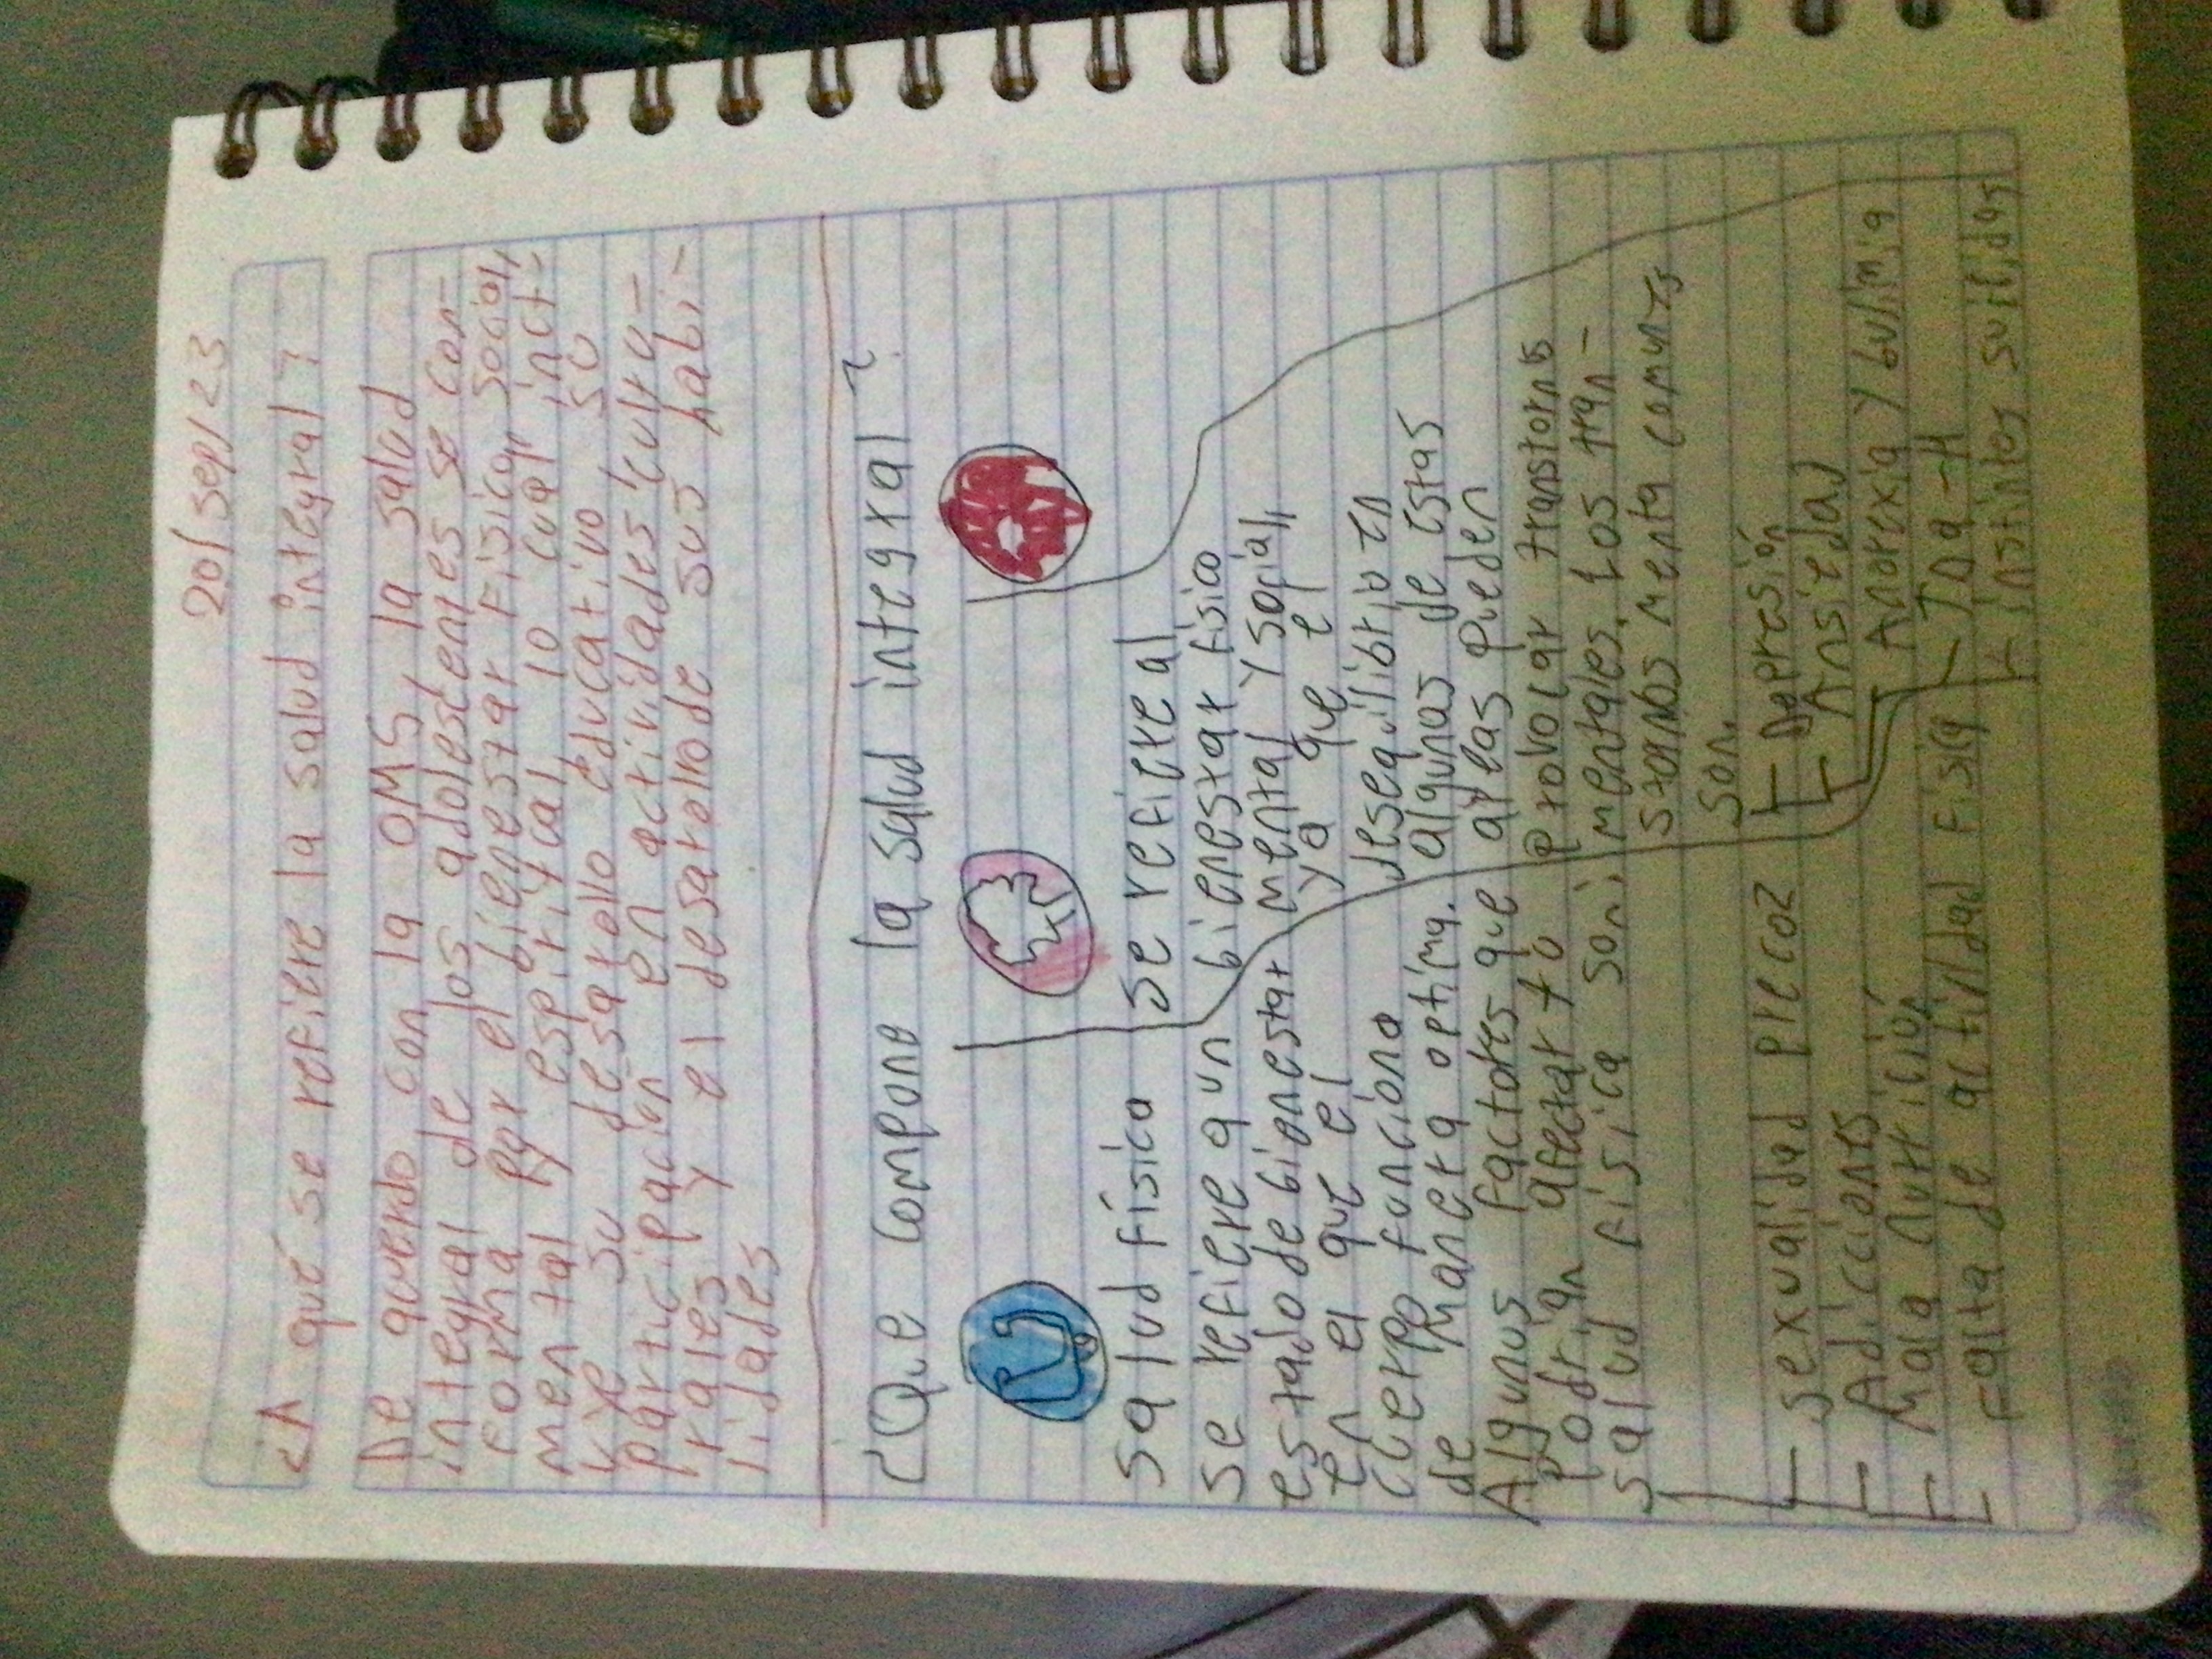 20/sep/23
¿A qué se refiere la salud integral?
De acuerdo con la OMS, la salud
integral de los adolescentes se con-
forma por el bienestar Físico, social,
mental y espiritual, lo cual inclu-
ye su desarrollo educativo su
participación en actividades cultu-
rales y el desarrollo de sus habi-
lidades
¿Que compone la salud integral?
Salud física
Se refiere a un
estado de bienestar
en el que el
cuerpo funciona
de manera optima.
Algunos factores que
podrian afectar tu
salud física son:
Sexualidad precoz
Adicciones
Mala nutrición
Falta de actividad Fisica
Se refiere al
bienestar físico
mental y social,
ya que el
desequilibrio en
algunas de estas
areas pueden
provocar transtornos
mentales. Los tran-
stornos menta comunes
son.
Depresión
Ansiedad
Anorexia y bulimia
Tda-H
instintos suicidas